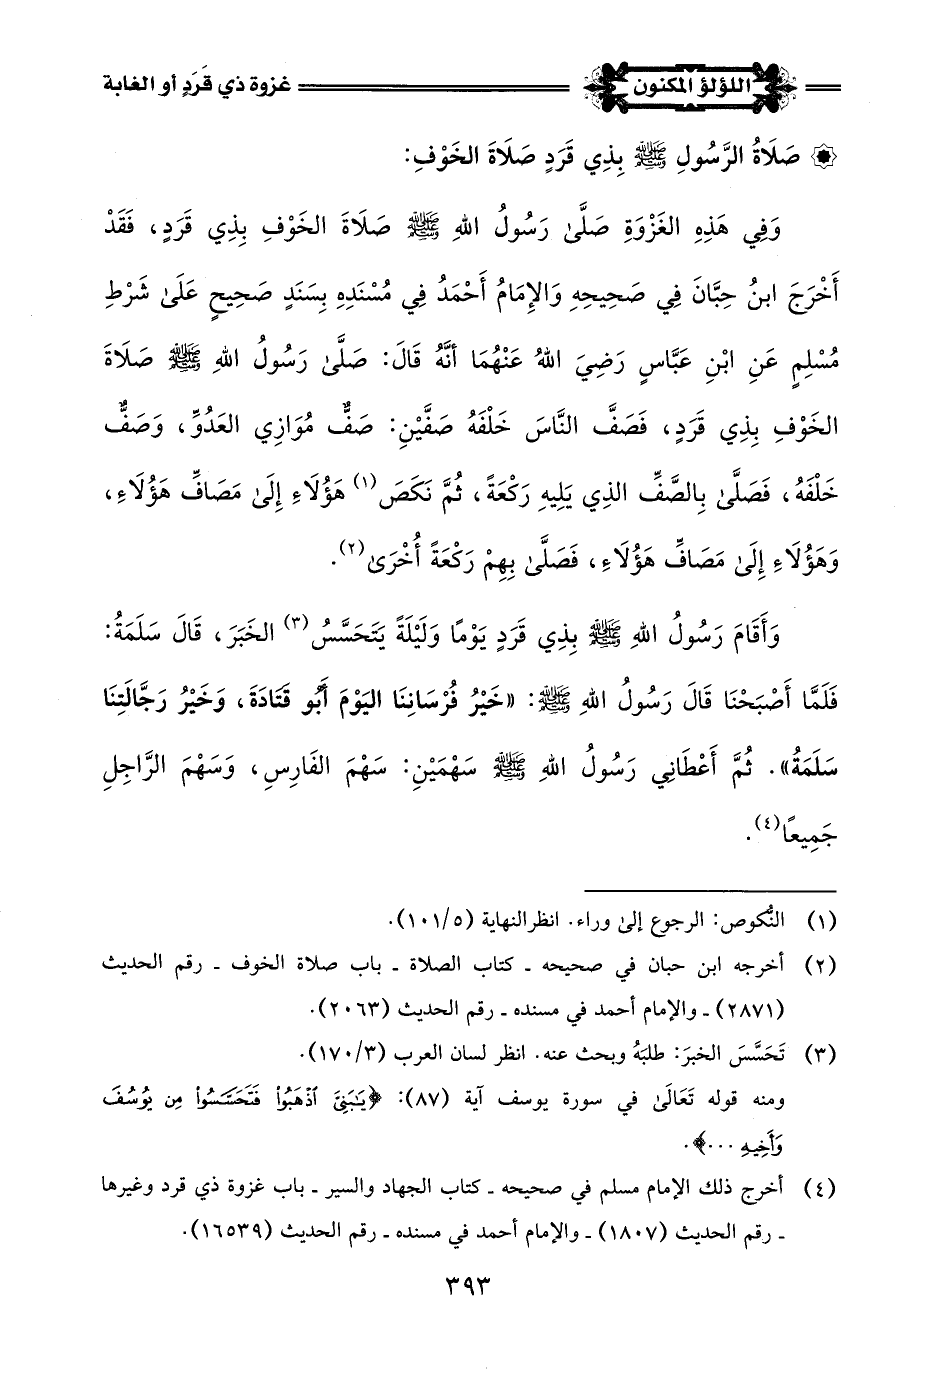 اللؤلؤ المكنون غزوة ذي قَرَدٍ أو الغابة
صَلَاةُ الرَّسُولِ ﷺ بِذِي قَرَدٍ صَلَاةَ الخَوْفِ:
وَفِي هَذِهِ الغَزْوَةِ صَلَّىٰ رَسُولُ اللهِ ﷺ صَلَاةَ الخَوْفِ بِذِي قَرَدٍ، فَقَدْ
أَخْرَجَ ابنُ حِبَّانَ فِي صَحِيحِهِ وَالإِمَامُ أَحْمَدُ فِي مُسْنَدِهِ بِسَنَدٍ صَحِيحٍ عَلَىٰ شَرْطِ
مُسْلِمٍ عَنِ ابْنِ عَبَّاسٍ رَضِيَ اللهُ عَنْهُمَا أَنَّهُ قَالَ: صَلَّىٰ رَسُولُ اللهِ ﷺ صَلَاةَ
الخَوْفِ بِذِي قَرَدٍ، فَصَفَّ النَّاسَ خَلْفَهُ صَفَّيْنِ: صَفٌّ مُوَازِي العَدُوِّ، وَصَفٌّ
خَلْفَهُ، فَصَلَّىٰ بِالصَّفِّ الذِي يَلِيهِ رَكْعَةً، ثُمَّ نَكَصَ(١) هَؤُلَاءِ إِلَىٰ مَصَافِّ هَؤُلَاءِ،
وَهَؤُلَاءِ إِلَىٰ مَصَافِّ هَؤُلَاءِ، فَصَلَّىٰ بِهِمْ رَكْعَةً أُخْرَىٰ(٢).
وَأَقَامَ رَسُولُ اللهِ ﷺ بِذِي قَرَدٍ يَوْمًا وَلَيْلَةً يَتَحَسَّسُ(٣) الخَبَرَ، قَالَ سَلَمَةُ:
فَلَمَّا أَصْبَحْنَا قَالَ رَسُولُ اللهِ ﷺ: «خَيْرُ فُرْسَانِنَا اليَوْمَ أَبُو قَتَادَةَ، وَخَيْرُ رَجَّالَتِنَا
سَلَمَةُ». ثُمَّ أَعْطَانِي رَسُولُ اللهِ ﷺ سَهْمَيْنِ: سَهْمَ الفَارِسِ، وَسَهْمَ الرَّاجِلِ
جَمِيعًا(٤).
(١) النُّكوص: الرجوع إلىٰ وراء. انظرالنهاية (١٠١/٥).
(٢) أخرجه ابن حبان في صحيحه ـ كتاب الصلاة ـ باب صلاة الخوف ـ رقم الحديث
(٢٨٧١) ـ والإمام أحمد في مسنده ـ رقم الحديث (٢٠٦٣).
(٣) تَحَسَّسَ الخبرَ: طلبَهُ وبحث عنه. انظر لسان العرب (١٧٠/٣).
ومنه قوله تَعَالَىٰ في سورة يوسف آية (٨٧): ﴿يَٰبَنِيَّ ٱذْهَبُوا۟ فَتَحَسَّسُوا۟ مِن يُوسُفَ
وَأَخِيهِ ...﴾.
(٤) أخرج ذلك الإمام مسلم في صحيحه ـ كتاب الجهاد والسير ـ باب غزوة ذي قرد وغيرها
ـ رقم الحديث (١٨٠٧) ـ والإمام أحمد في مسنده ـ رقم الحديث (١٦٥٣٩).
٣٩٣